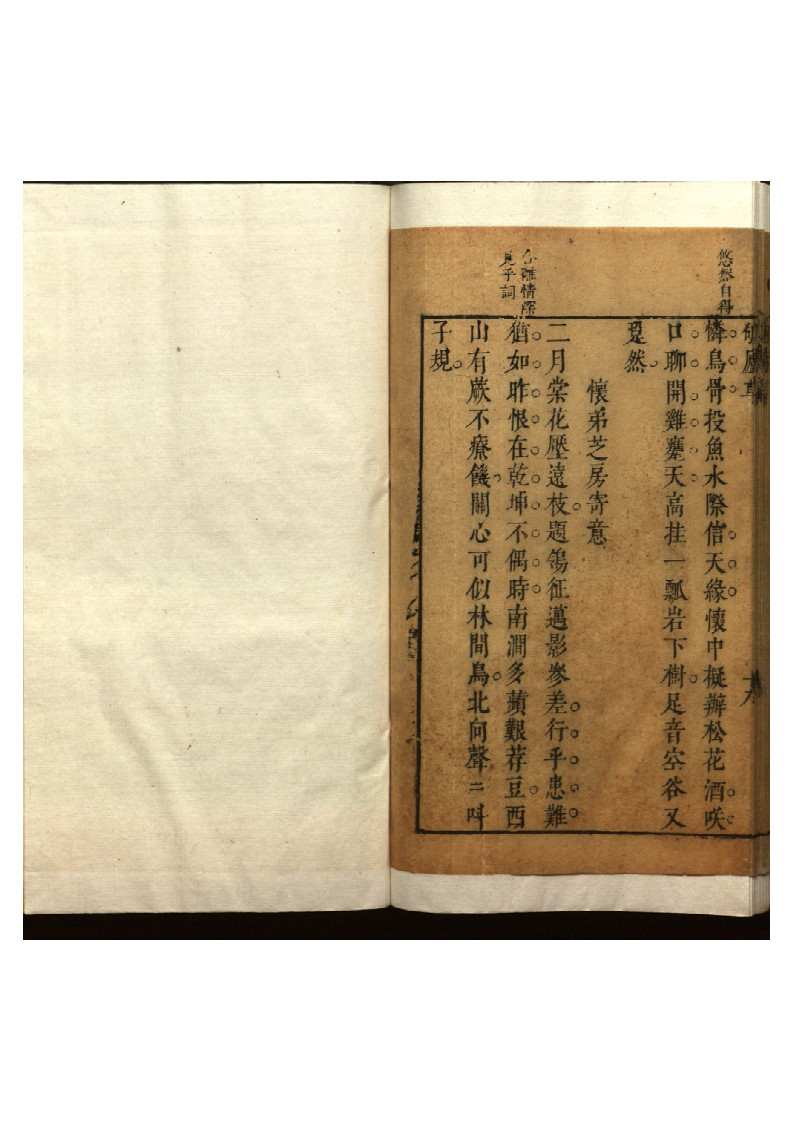 悠然自得
憐鳥骨投魚水際信天緣懷中擬辦松花酒咲
口聊開雞甕天高挂一瓢岩下樹足音空谷又
跫然
懷弟芝房寄意
分離情深
見乎詞
二月棠花壓遠枝題鴒征邁影參差行乎患難
猶如昨恨在乾坤不偶時南澗多蘋艱荐豆西
山有蕨不療饑關心可似林間鳥北向聲〻叫
子規